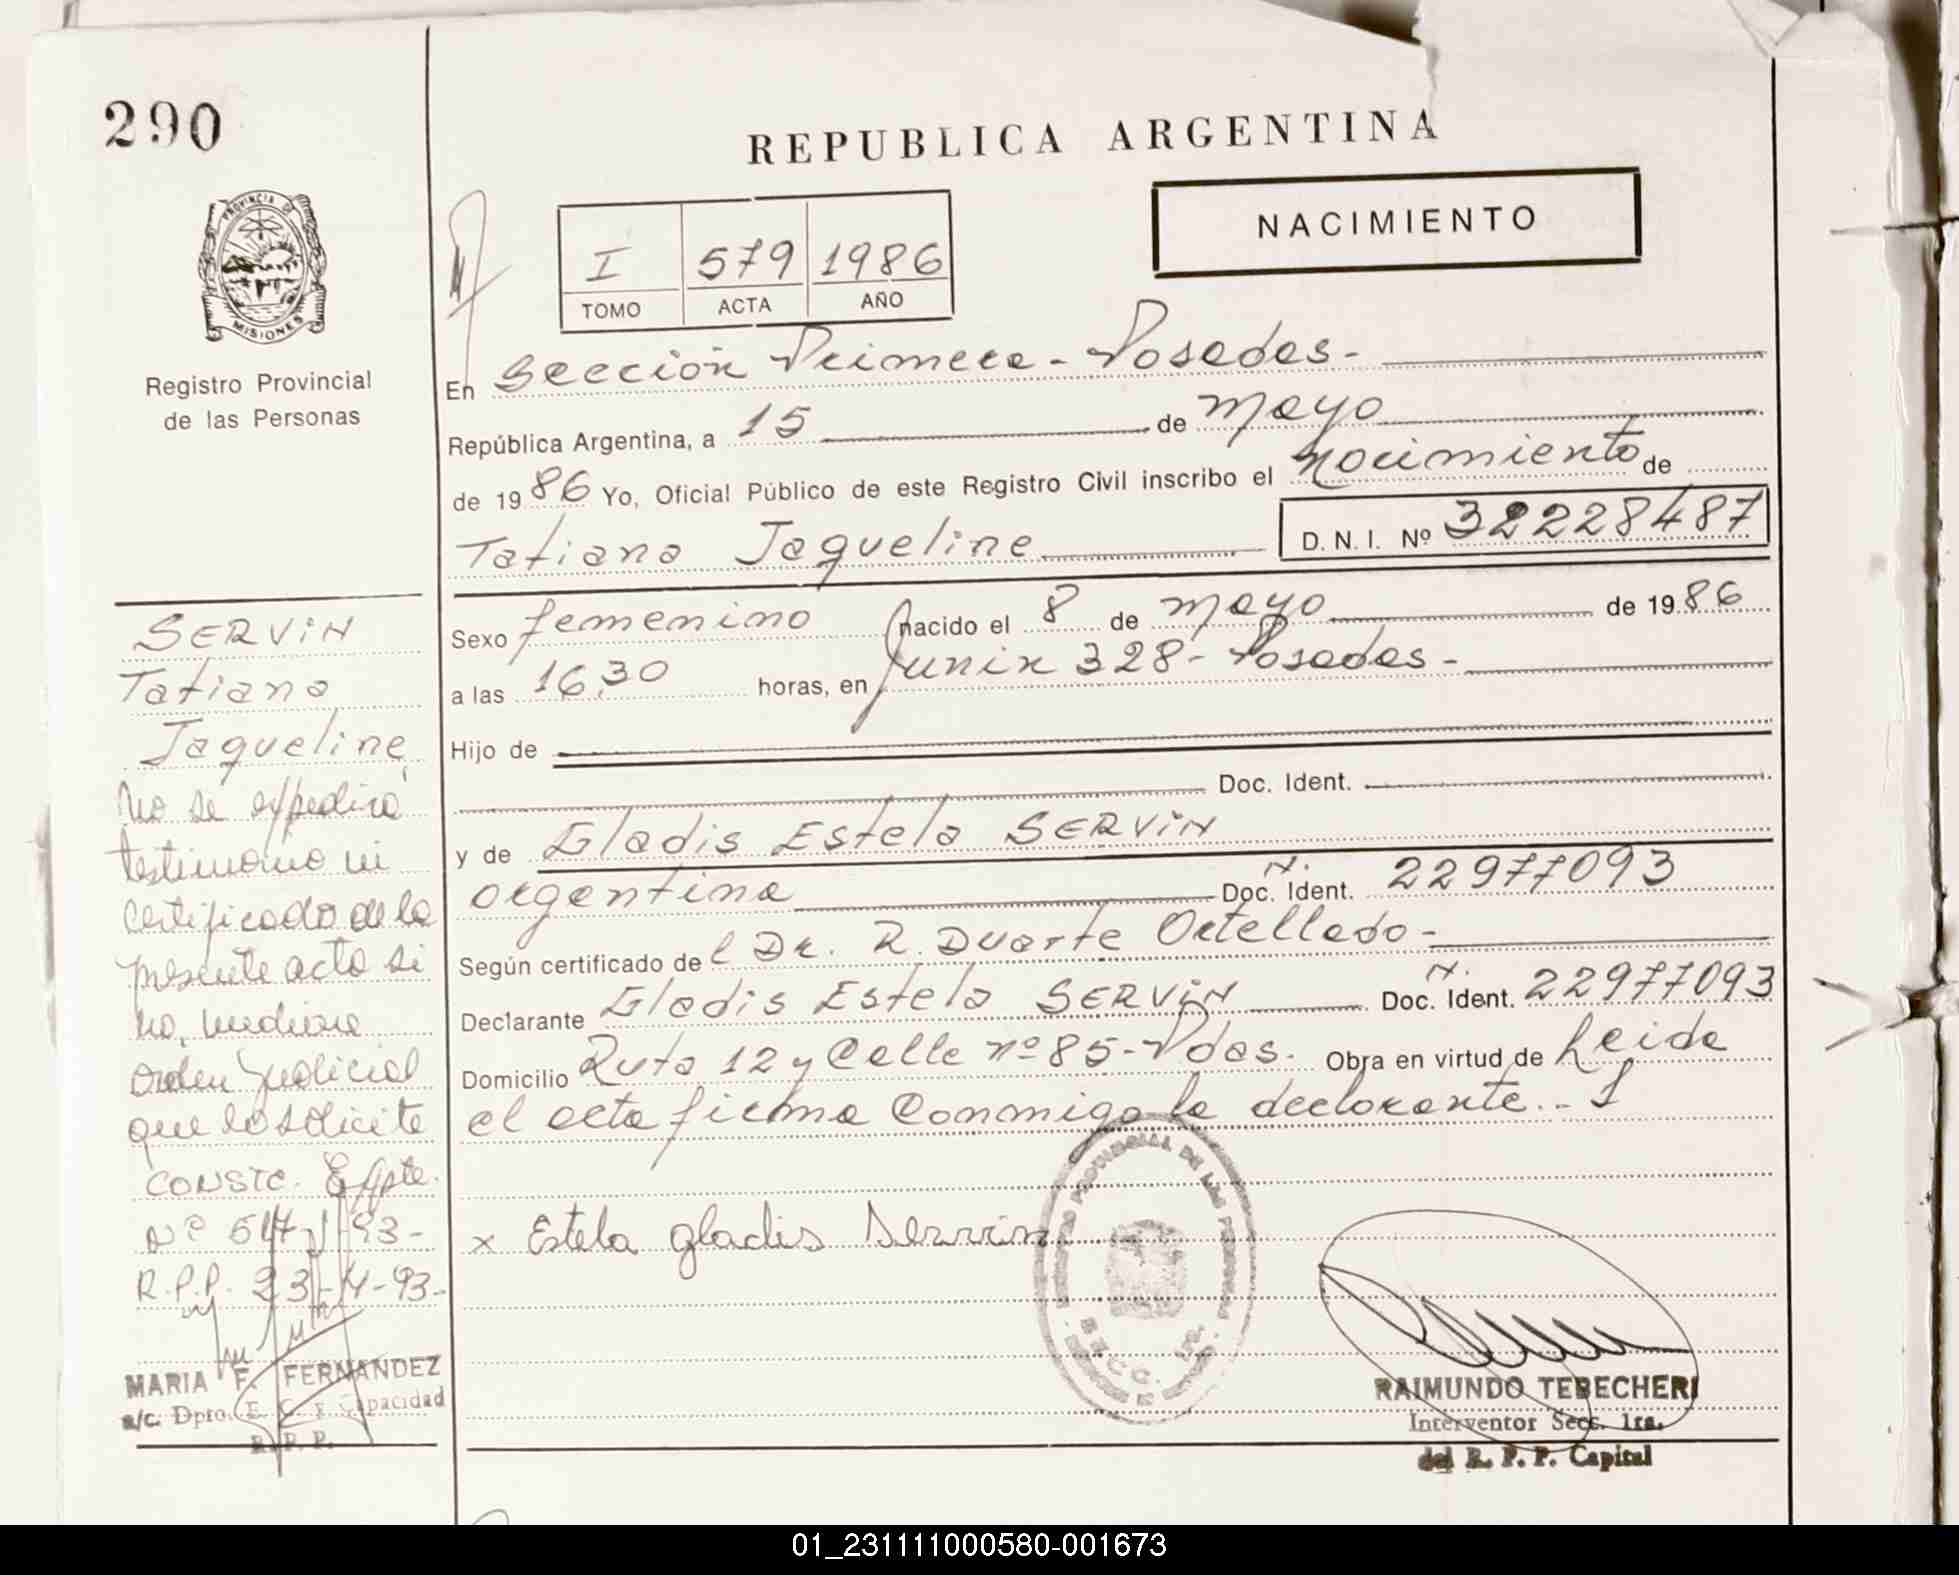 290
REPUBLICA ARGENTINA
NACIMIENTO
I 579 1986
TOMO ACTA AÑO
PROVINCIA DE
MISIONES
Registro Provincial
de las Personas
En Sección Primera - Posadas -
República Argentina, a 15 de mayo
de 1986 Yo, Oficial Público de este Registro Civil inscribo el nacimiento de
Tatiana Jaqueline D. N. I. Nº 32228487
Sexo femenino nacido el 8 de mayo de 1986
a las 16,30 horas, en Junin 328 - Posadas -
Hijo de
Doc. Ident.
y de Gladis Estela SERViN
argentina Doc. N. Ident. 22977093
Según certificado de l Dr. R. Duarte Ortellado -
Declarante Gladis Estela SERViN Doc. N. Ident. 22977093
Domicilio Ruta 12 y Calle nº 85 - Pdas. Obra en virtud de Leida
el acta firma conmigo la declarante. -
x Estela gladis Servin
SERViN
Tatiana
Jaqueline
No se expedirá
testimonio ni
certificado de la
presente acta si
no, mediare
orden judicial
que lo solicite
CONSTE. Expte.
Nº 517 93 -
R.P.P. 23-4-93 -
MARIA F. FERNANDEZ
a/c. Dpto. E. C. y Capacidad
R. P. P.
REGISTRO PROVINCIAL DE LAS PERSONAS
RAIMUNDO TEBECHERI
Interventor Secc. 1ra.
del R. P. P. Capital
01_231111000580-001673